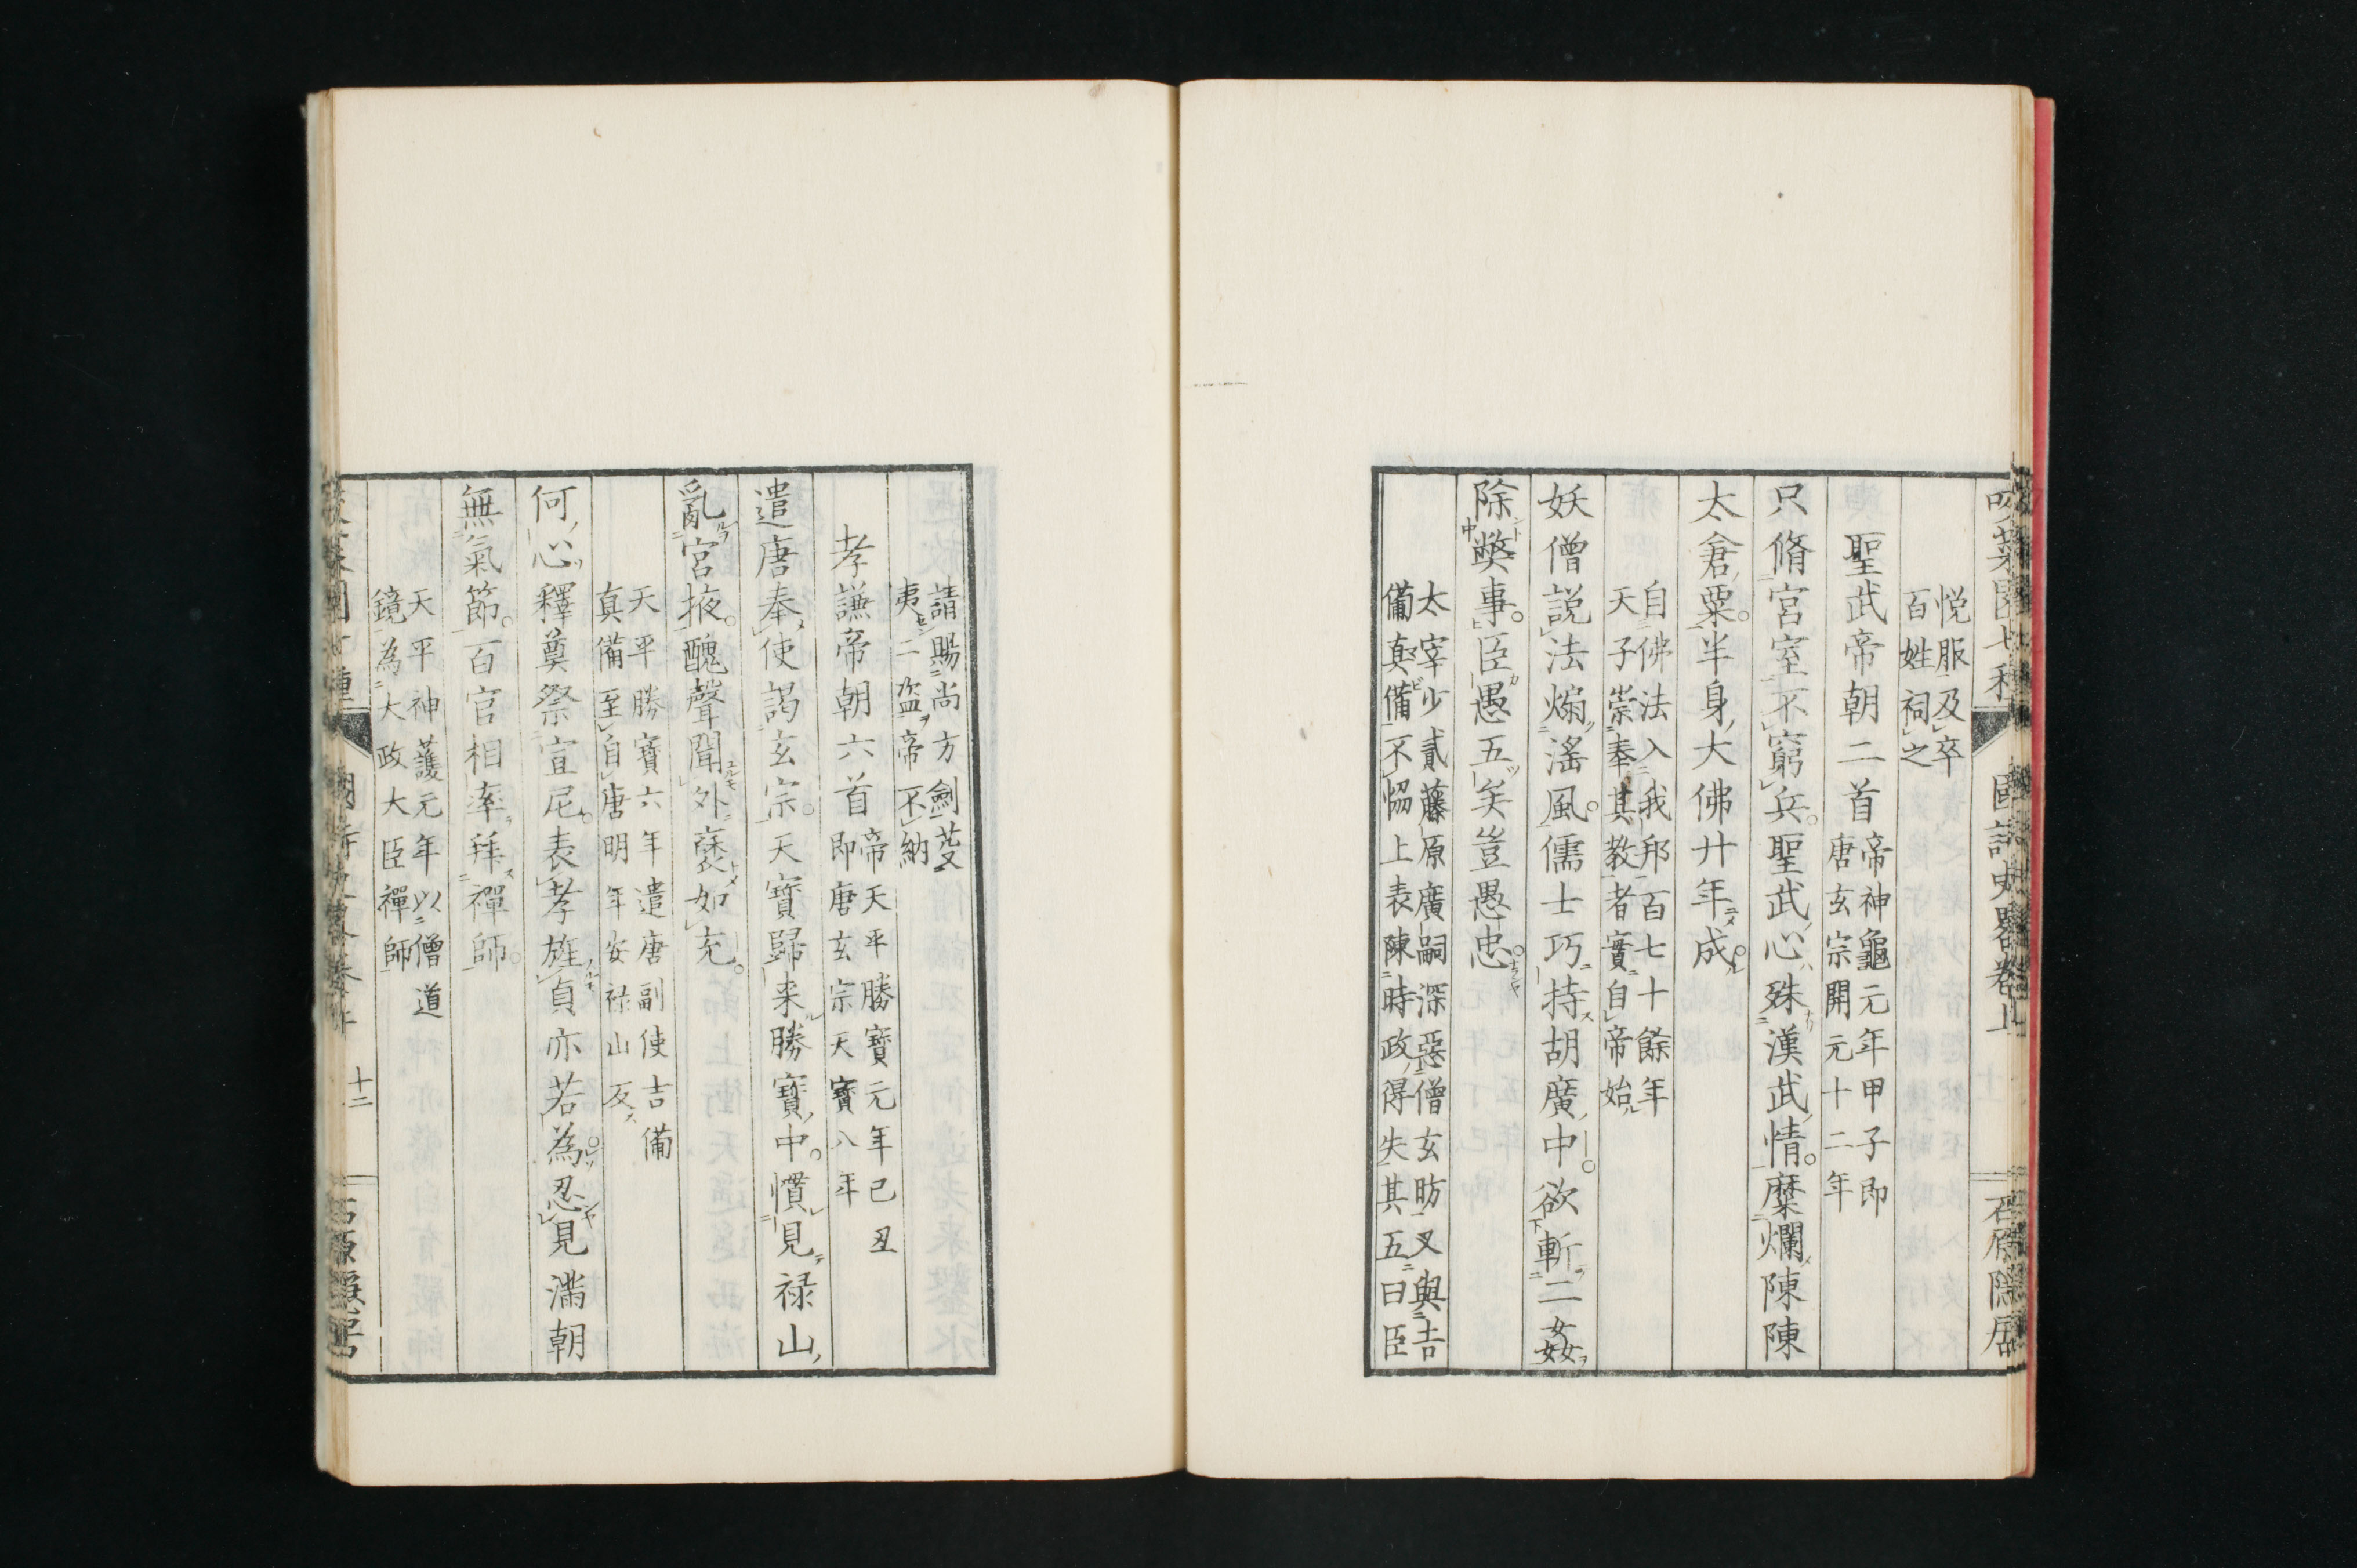 國詩史畧卷上
石原隱居
悦服及卒
百姓祠之
聖武帝朝二首
帝神龜元年甲子即
唐玄宗開元十二年
只脩宮室不窮兵聖武心殊漢武情糜爛陳陳
太倉粟半身大佛廿年成
自佛法入我邦百七十餘年
天子崇奉其教者實自帝始
妖僧説法煽滛風儒士巧持胡廣中欲斬二姦
除弊事臣愚五矣豈愚忠
太宰少貳藤原廣嗣深惡僧玄昉又與吉
備真備不恊上表陳時政得失其五曰臣
請賜尚方劍芟
夷二盜帝不納
孝謙帝朝六首
帝天平勝寶元年己丑
即唐玄宗天寶八年
遣唐奉使謁玄宗天寶歸来勝寶中慣見祿山
亂宮掖醜聲聞外褎如充
天平勝寶六年遣唐副使吉備
真備至自唐明年安祿山反
何心釋奠祭宣尼表孝旌貞亦若為忍見滿朝
無氣節百官相率拜禪師
天平神護元年以僧道
鏡為大政大臣禪師
十二